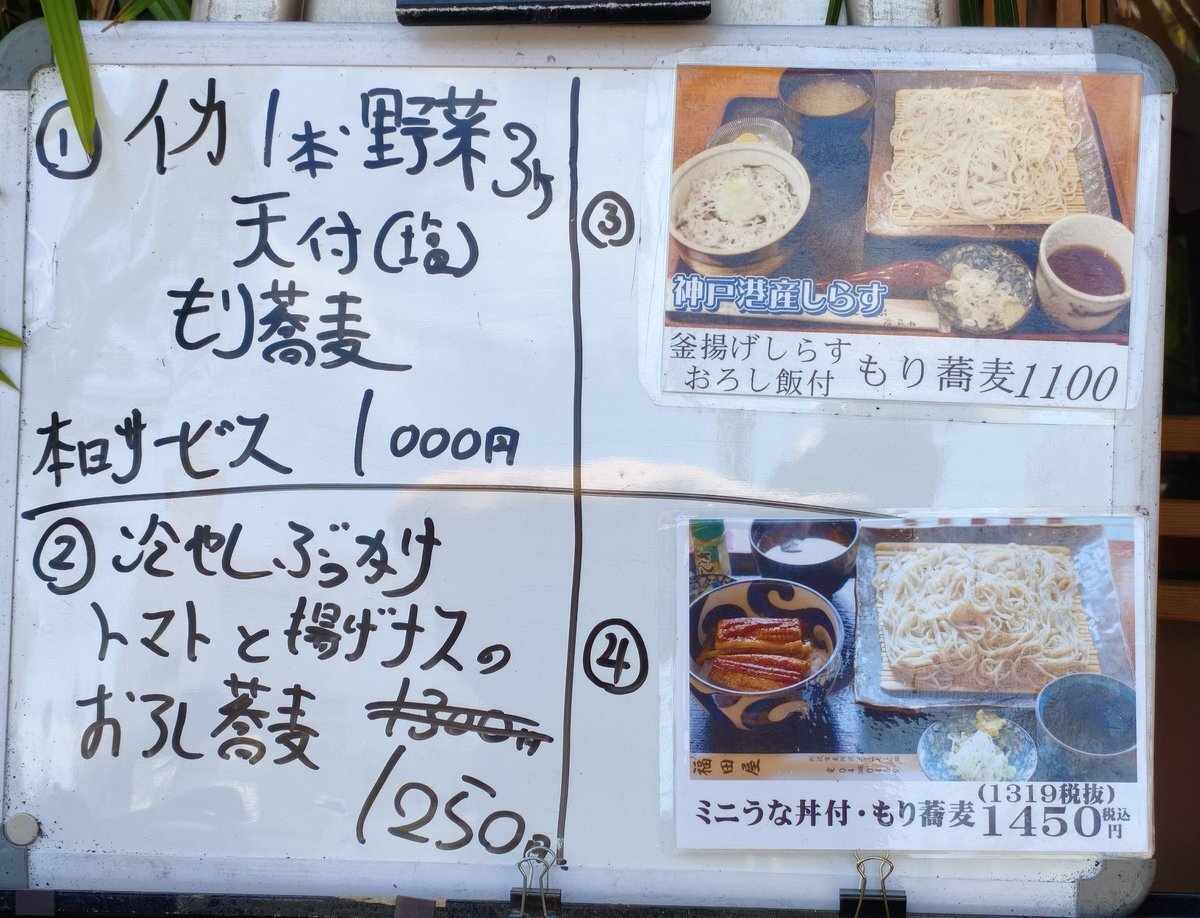 ① イカ1本野菜3ケ
天付(塩)
もり蕎麦
本日サービス 1000円
② 冷やしぶっかけ
トマトと揚げナスの
おろし蕎麦 1300円
1250円
③
神戸港産しらす
釜揚げしらす
おろし飯付 もり蕎麦1100
④
福田屋
(1319税抜)
ミニうな丼付・もり蕎麦1450税込円